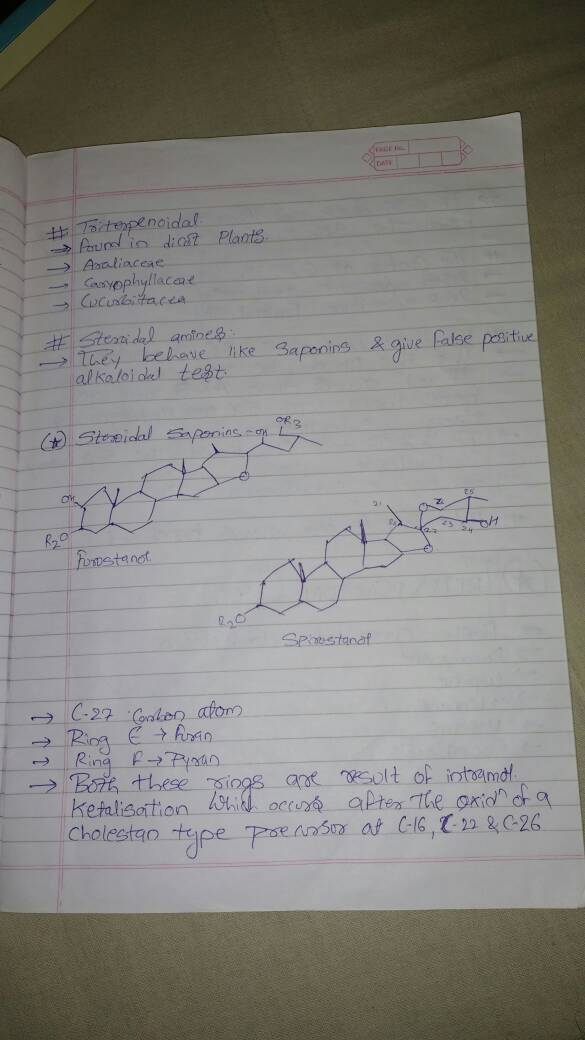 PAGE No.
DATE
# Triterpenoidal
→ found in dicot Plants.
→ Araliaceae
→ Caryophyllaceae
→ Cucurbitacea
# Steroidal amines:
→ They behave like Saponins & give false positive
alkaloidal test.
(*) Steroidal Saponins -
OH
OR3
OH
O
R2O
Furostanol
21
20
O
26
25
22
23
24
OH
O
R2O
Spirostanol
→ C-27 Carbon atom
→ Ring E → furan
→ Ring F → Pyran
→ Both these rings are result of intramol.
Ketalisation Which occurs after The oxidn of a
Cholestan type precursor at C-16, C-22 & C-26